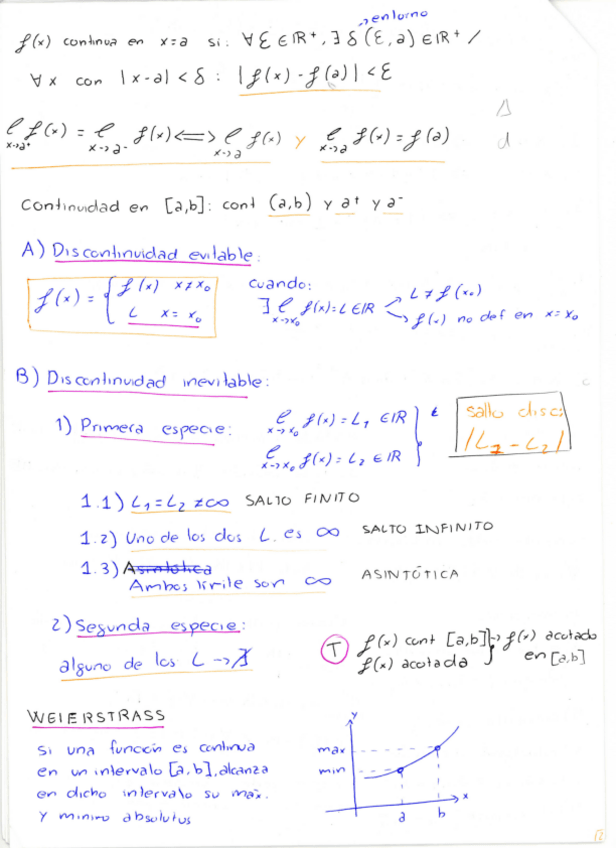 → entorno
f(x) continua en x=a si: ∀ Ɛ ∈ IR⁺, ∃ δ (Ɛ, a) ∈ IR⁺ /
∀ x con |x-a| < δ : |f(x) - f(a)| < Ɛ
ℓ x→a⁺ f(x) = ℓ x→a⁻ f(x) <=> ℓ x→a f(x) y ℓ x→a f(x) = f(a)
Continuidad en [a,b]: cont (a,b) y a⁺ y a⁻
A) Discontinuidad evitable:
f(x) = { f(x) x≠x₀
L x = x₀
cuando:
∃ ℓ x→x₀ f(x) = L ∈ IR
→ L ≠ f(x₀)
→ f(x) no def en x = x₀
B) Discontinuidad inevitable:
1) Primera especie:
ℓ x→x₀ f(x) = L₁ ∈ IR
ℓ x→x₀ f(x) = L₂ ∈ IR
salto disc:
|L₁ - L₂|
1.1) L₁ = L₂ ≠ ∞ SALTO FINITO
1.2) Uno de los dos L. es ∞ SALTO INFINITO
1.3) Asintótica
Ambos límite son ∞ ASINTÓTICA
2) Segunda especie:
alguno de los L → ∄
T f(x) cont [a,b] } → f(x) acotado
f(x) acotada en [a,b]
WEIERSTRASS
Si una función es continua
en un intervalo [a,b], alcanza
en dicho intervalo su max.
Y minimo absolutos
y
max
min
a b x